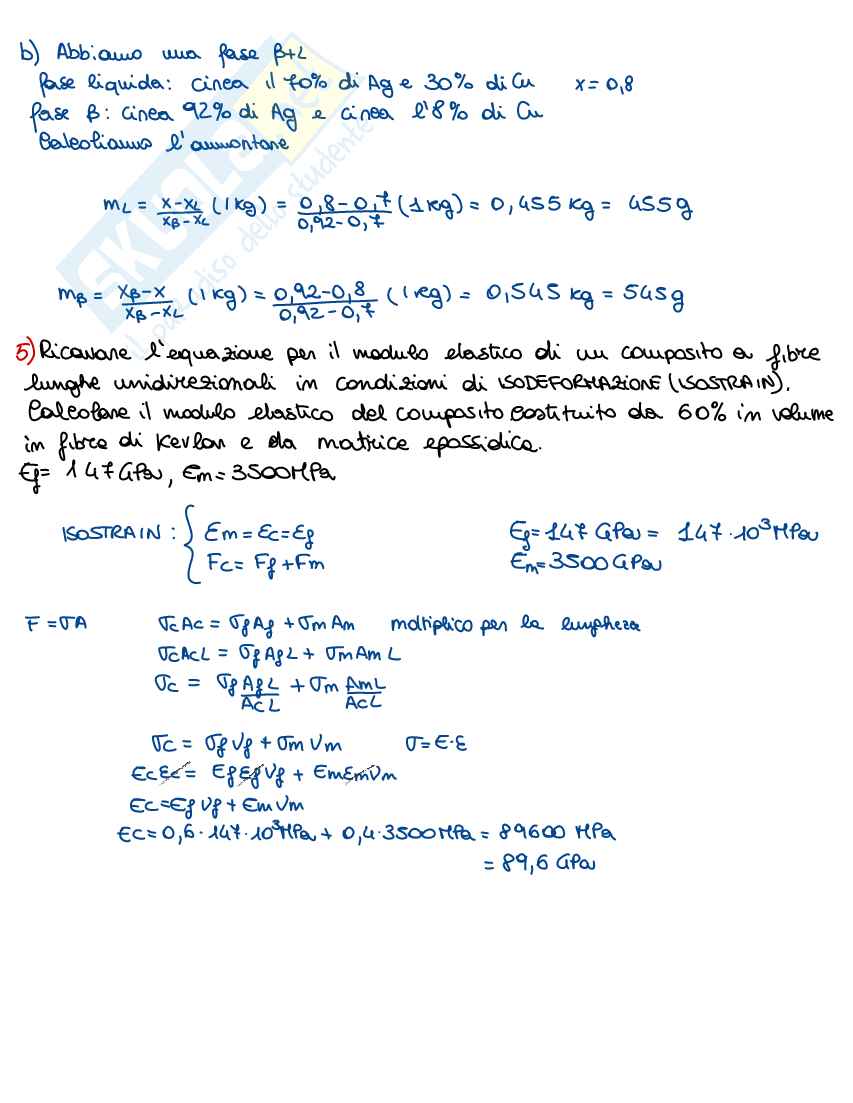 b) Abbiamo una fase β+L
fase liquida: circa il 70% di Ag e 30% di Cu x = 0,8
fase β: circa 92% di Ag e circa l'8% di Cu
Calcoliamo l'ammontare
mL = x-xL/xβ-xL (1kg) = 0,8-0,7/0,92-0,7 (1kg) = 0,455 kg = 455g
mβ = xβ-x/xβ-xL (1kg) = 0,92-0,8/0,92-0,7 (1kg) = 0,545 kg = 545g
5) Ricavare l'equazione per il modulo elastico di un composito a fibre
lunghe unidirezionali in condizioni di ISODEFORMAZIONE (ISOSTRAIN).
Calcolare il modulo elastico del composito costituito da 60% in volume
in fibra di Kevlar e da matrice epossidica.
Ef= 147 GPa, Em=3500MPa
ISOSTRAIN : { Ɛm = Ɛc = Ɛf Ef = 147 GPa = 147·10³MPa
Fc = Ff + Fm Em=3500 GPa
F = σA σcAc = σfAf + σmAm moltiplico per la lunghezza
σcAcL = σfAfL + σmAmL
σc = σf AfL/AcL + σm AmL/AcL
σc = σfVf + σmVm σ=E·Ɛ
EcƐc = EfƐfVf + EmƐmVm
Ec=EfVf + EmVm
Ec= 0,6·147·10³MPa + 0,4·3500MPa = 89600 MPa
= 89,6 GPa
SKUOLA.net
il paradiso dello studente